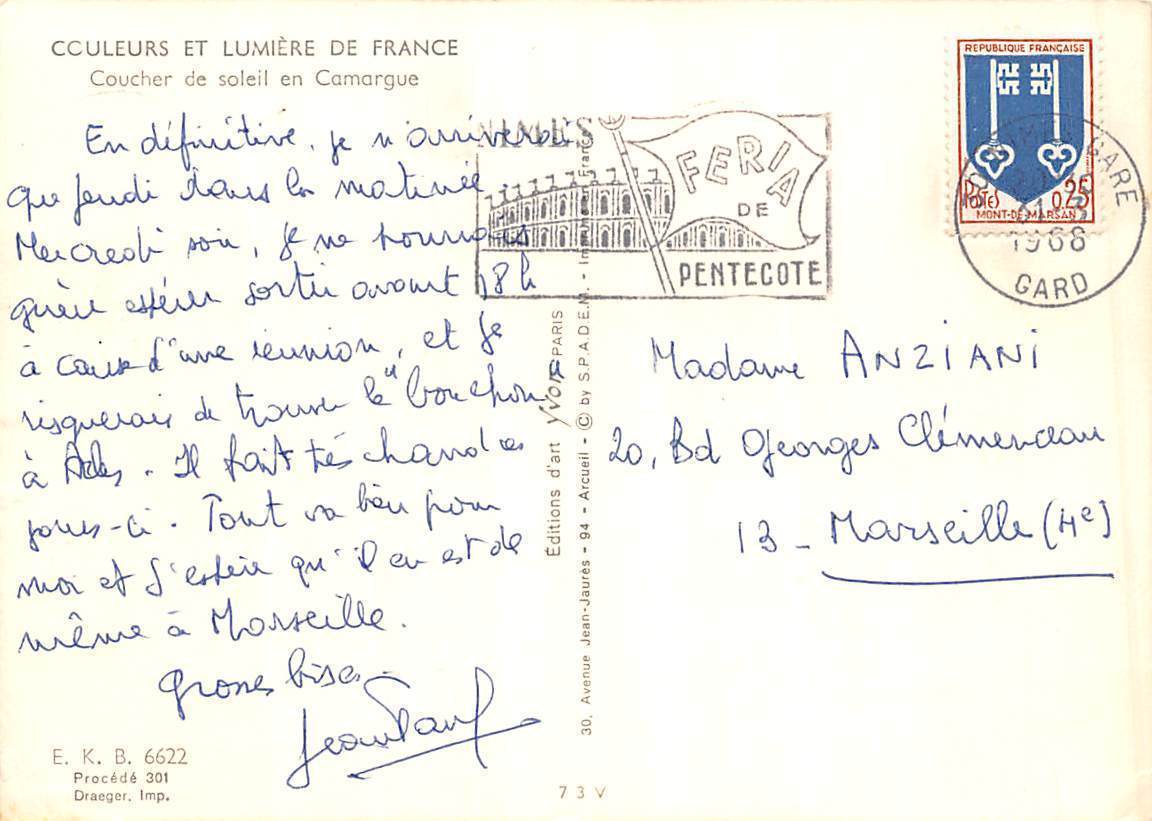 COULEURS ET LUMIÈRE DE FRANCE
Coucher de soleil en Camargue
En définitive, je n'arriverai
que jeudi dans la matinée
Mercredi soir, je ne pourrais
guère espérer sortir avant 18h
à cause d'une réunion, et je
risquerais de trouver le "bouchon"
à Arles. Il fait très chaud ces
jours-ci. Tout va bien pour
moi et j'espère qu'il en est de
même à Marseille.
Grosses bises
Jean Paul
E. K. B. 6622
Procédé 301
Draeger, Imp.
Éditions d'art YVON PARIS
30, Avenue Jean-Jaurès - 94 - Arcueil - © by S.P.A.D.E.M. - Imprimé en France
7 3 V
NIMES
FERIA
DE
PENTECOTE
REPUBLIQUE FRANÇAISE
POSTES 0,25
MONT-DE-MARSAN
NIMES GARE
1968
GARD
Madame ANZIANI
20, Bd Georges Clémenceau
13 - Marseille (4e)